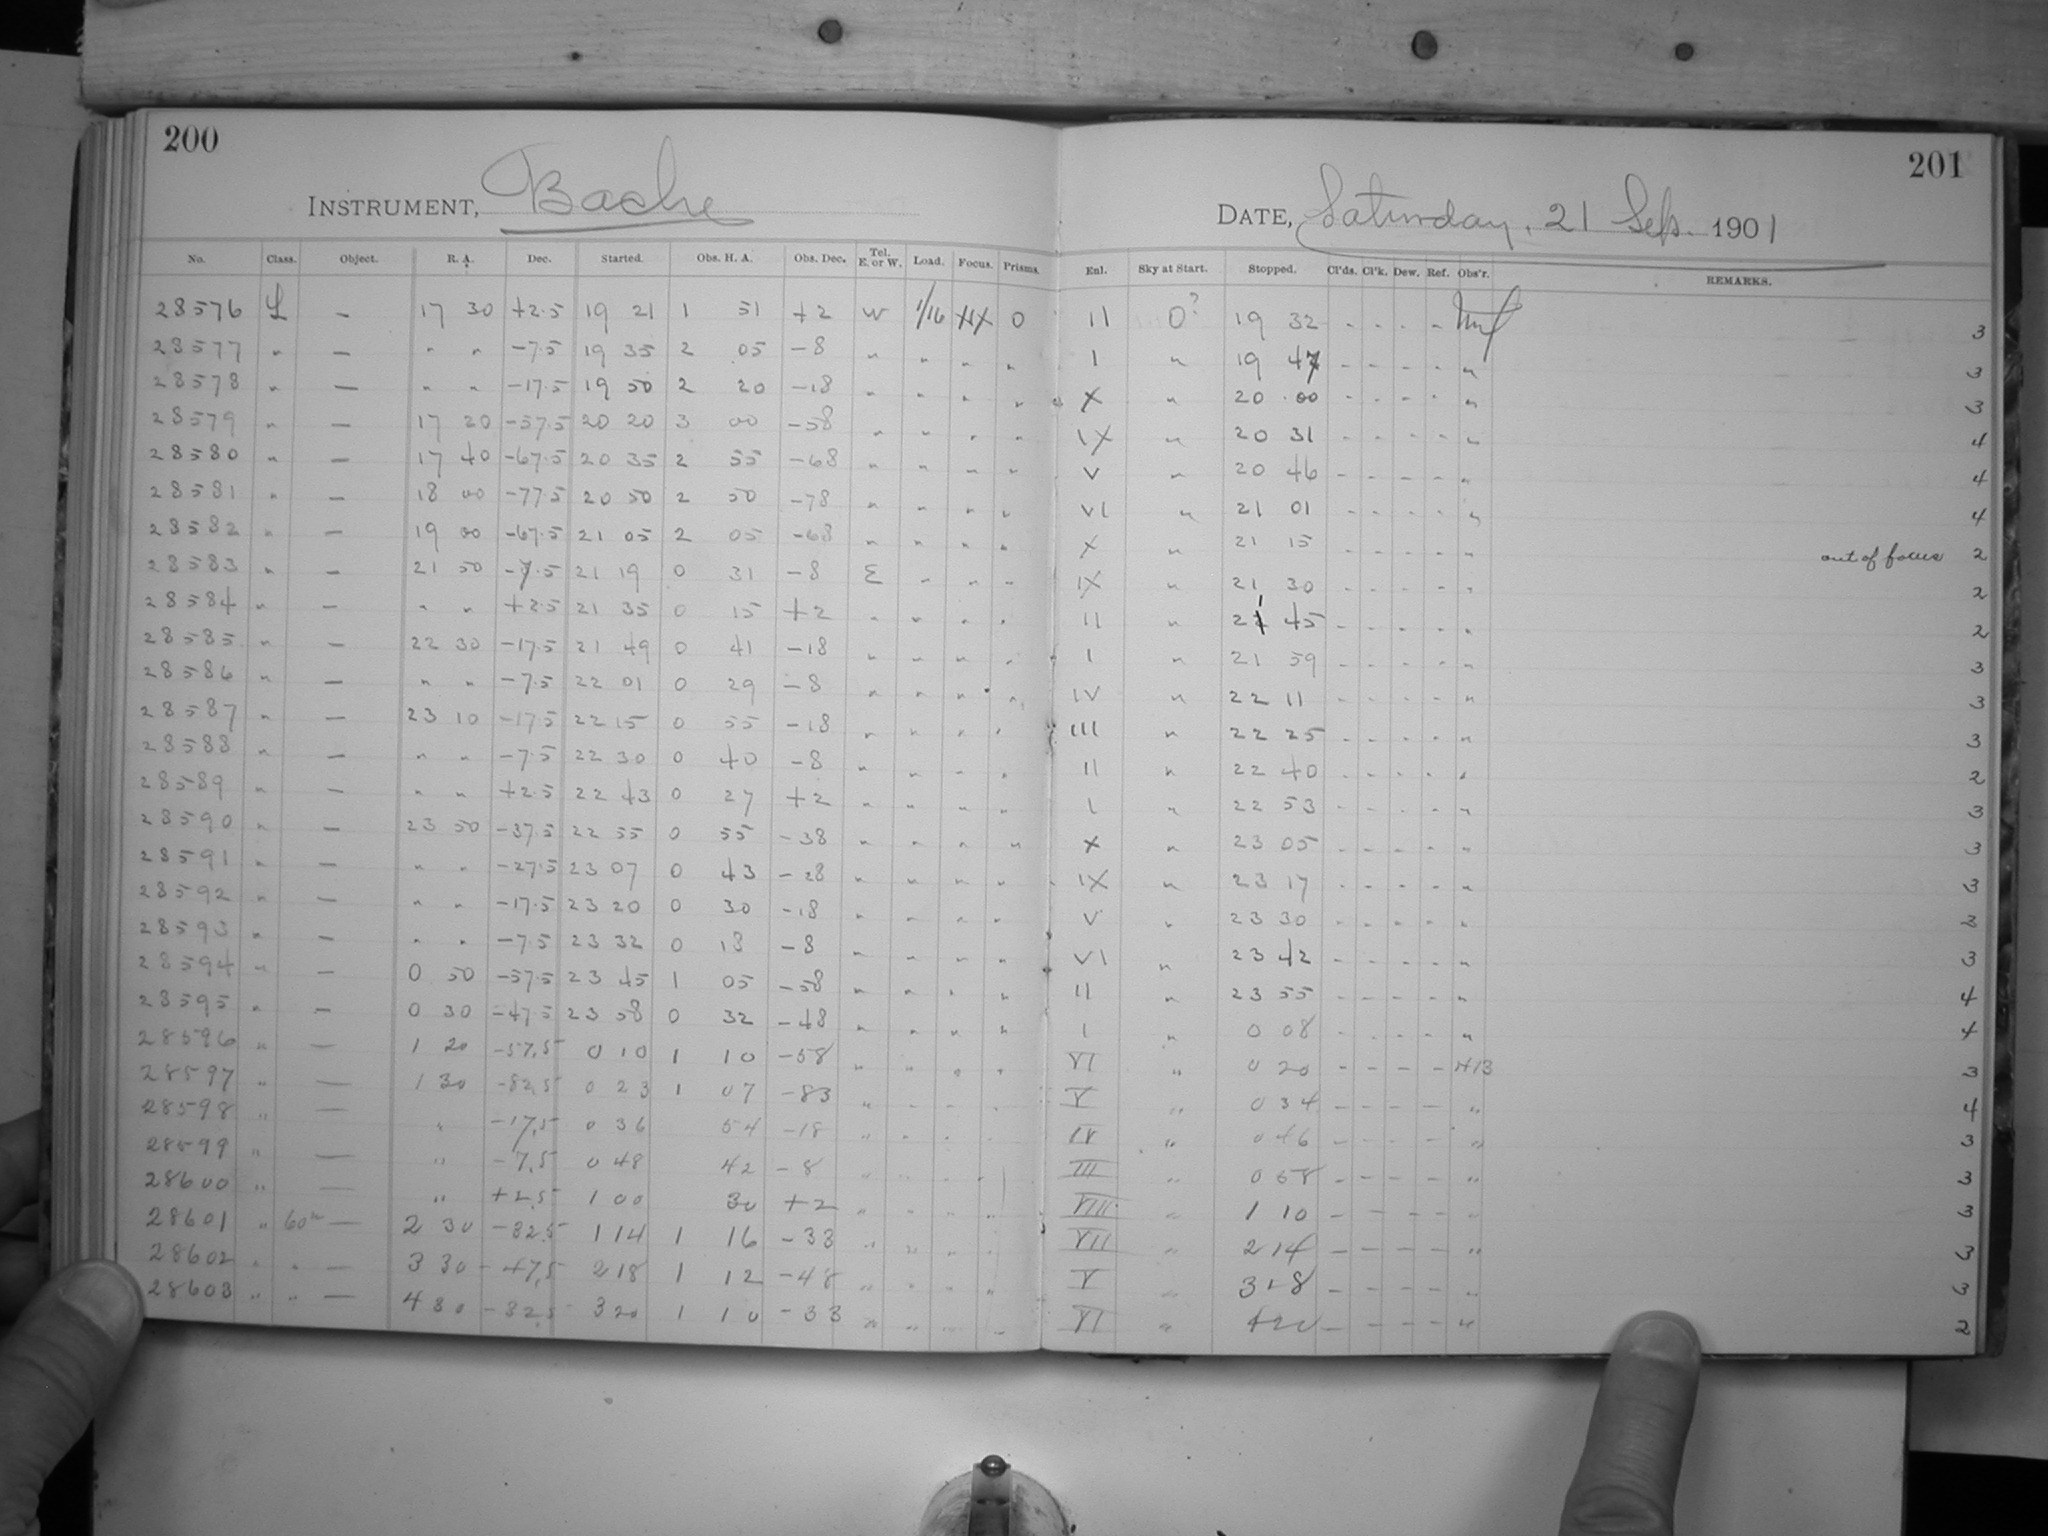 200
INSTRUMENT, Bache
No. Class. Object. R. A. Dec. Started. Obs. H. A. Obs. Dec. Tel. E. or W. Load. Focus. Prisms.
201
DATE, Saturday, 21 Sep. 1901
Enl. Sky at Start. Stopped. Cl'ds. Cl'k. Dew. Ref. Obs'r. REMARKS.
28576 L — 17 30 +2.5 19 21 1 51 +2 W 1/16 O II O? 19 32 - - - - 3
28577 " — " " -7.5 19 35 2 05 -8 " " " " I " 19 47 - - - - " 3
28578 " — " " -17.5 19 50 2 20 -18 " " " " X " 20 00 - - - - " 3
28579 " — 17 20 -57.5 20 20 3 00 -58 " " " " IX " 20 31 - - - - " 4
28580 " — 17 40 -67.5 20 35 2 55 -68 " " " " V " 20 46 - - - - " 4
28581 " — 18 00 -77.5 20 50 2 50 -78 " " " " VI " 21 01 - - - - " 4
28582 " — 19 00 -67.5 21 05 2 05 -68 " " " " X " 21 15 - - - - " out of focus 2
28583 " — 21 50 -7.5 21 19 0 31 -8 E " " " IX " 21 30 - - - - " 2
28584 " — " " +2.5 21 35 0 15 +2 " " " " II " 21 45 - - - - " 2
28585 " — 22 30 -17.5 21 49 0 41 -18 " " " " I " 21 59 - - - - " 3
28586 " — " " -7.5 22 01 0 29 -8 " " " " IV " 22 11 - - - - " 3
28587 " — 23 10 -17.5 22 15 0 55 -18 " " " " III " 22 25 - - - - " 3
28588 " — " " -7.5 22 30 0 40 -8 " " " " II " 22 40 - - - - " 2
28589 " — " " +2.5 22 43 0 27 +2 " " " " I " 22 53 - - - - " 3
28590 " — 23 50 -37.5 22 55 0 55 -38 " " " " X " 23 05 - - - - " 3
28591 " — " " -27.5 23 07 0 43 -28 " " " " IX " 23 17 - - - - " 3
28592 " — " " -17.5 23 20 0 30 -18 " " " " V " 23 30 - - - - " 3
28593 " — " " -7.5 23 32 0 18 -8 " " " " VI " 23 42 - - - - " 3
28594 " — 0 50 -57.5 23 45 1 05 -58 " " " " II " 23 55 - - - - " 4
28595 " — 0 30 -47.5 23 58 0 32 -48 " " " " I " 0 08 - - - - " 4
28596 " — 1 20 -57.5 0 10 1 10 -58 " " " " VI " 0 20 - - - - 3
28597 " — 1 30 -82.5 0 23 1 07 -83 " " " " V " 0 34 - - - - " 4
28598 " — " -17.5 0 36 54 -18 " " " " IV " 0 46 - - - - " 3
28599 " — " -7.5 0 48 42 -8 " " " " III " 0 58 - - - - " 3
28600 " — " +2.5 1 00 30 +2 " " " " VIII " 1 10 - - - - " 3
28601 " 60m — 2 30 -32.5 1 14 1 16 -33 " " " " VII " 2 14 - - - - " 3
28602 " " — 3 30 -47.5 2 18 1 12 -48 " " " " V " 3 18 - - - - " 3
28603 " " — 4 30 -32.5 3 20 1 10 -33 " " " " VI " 4 20 - - - - " 2